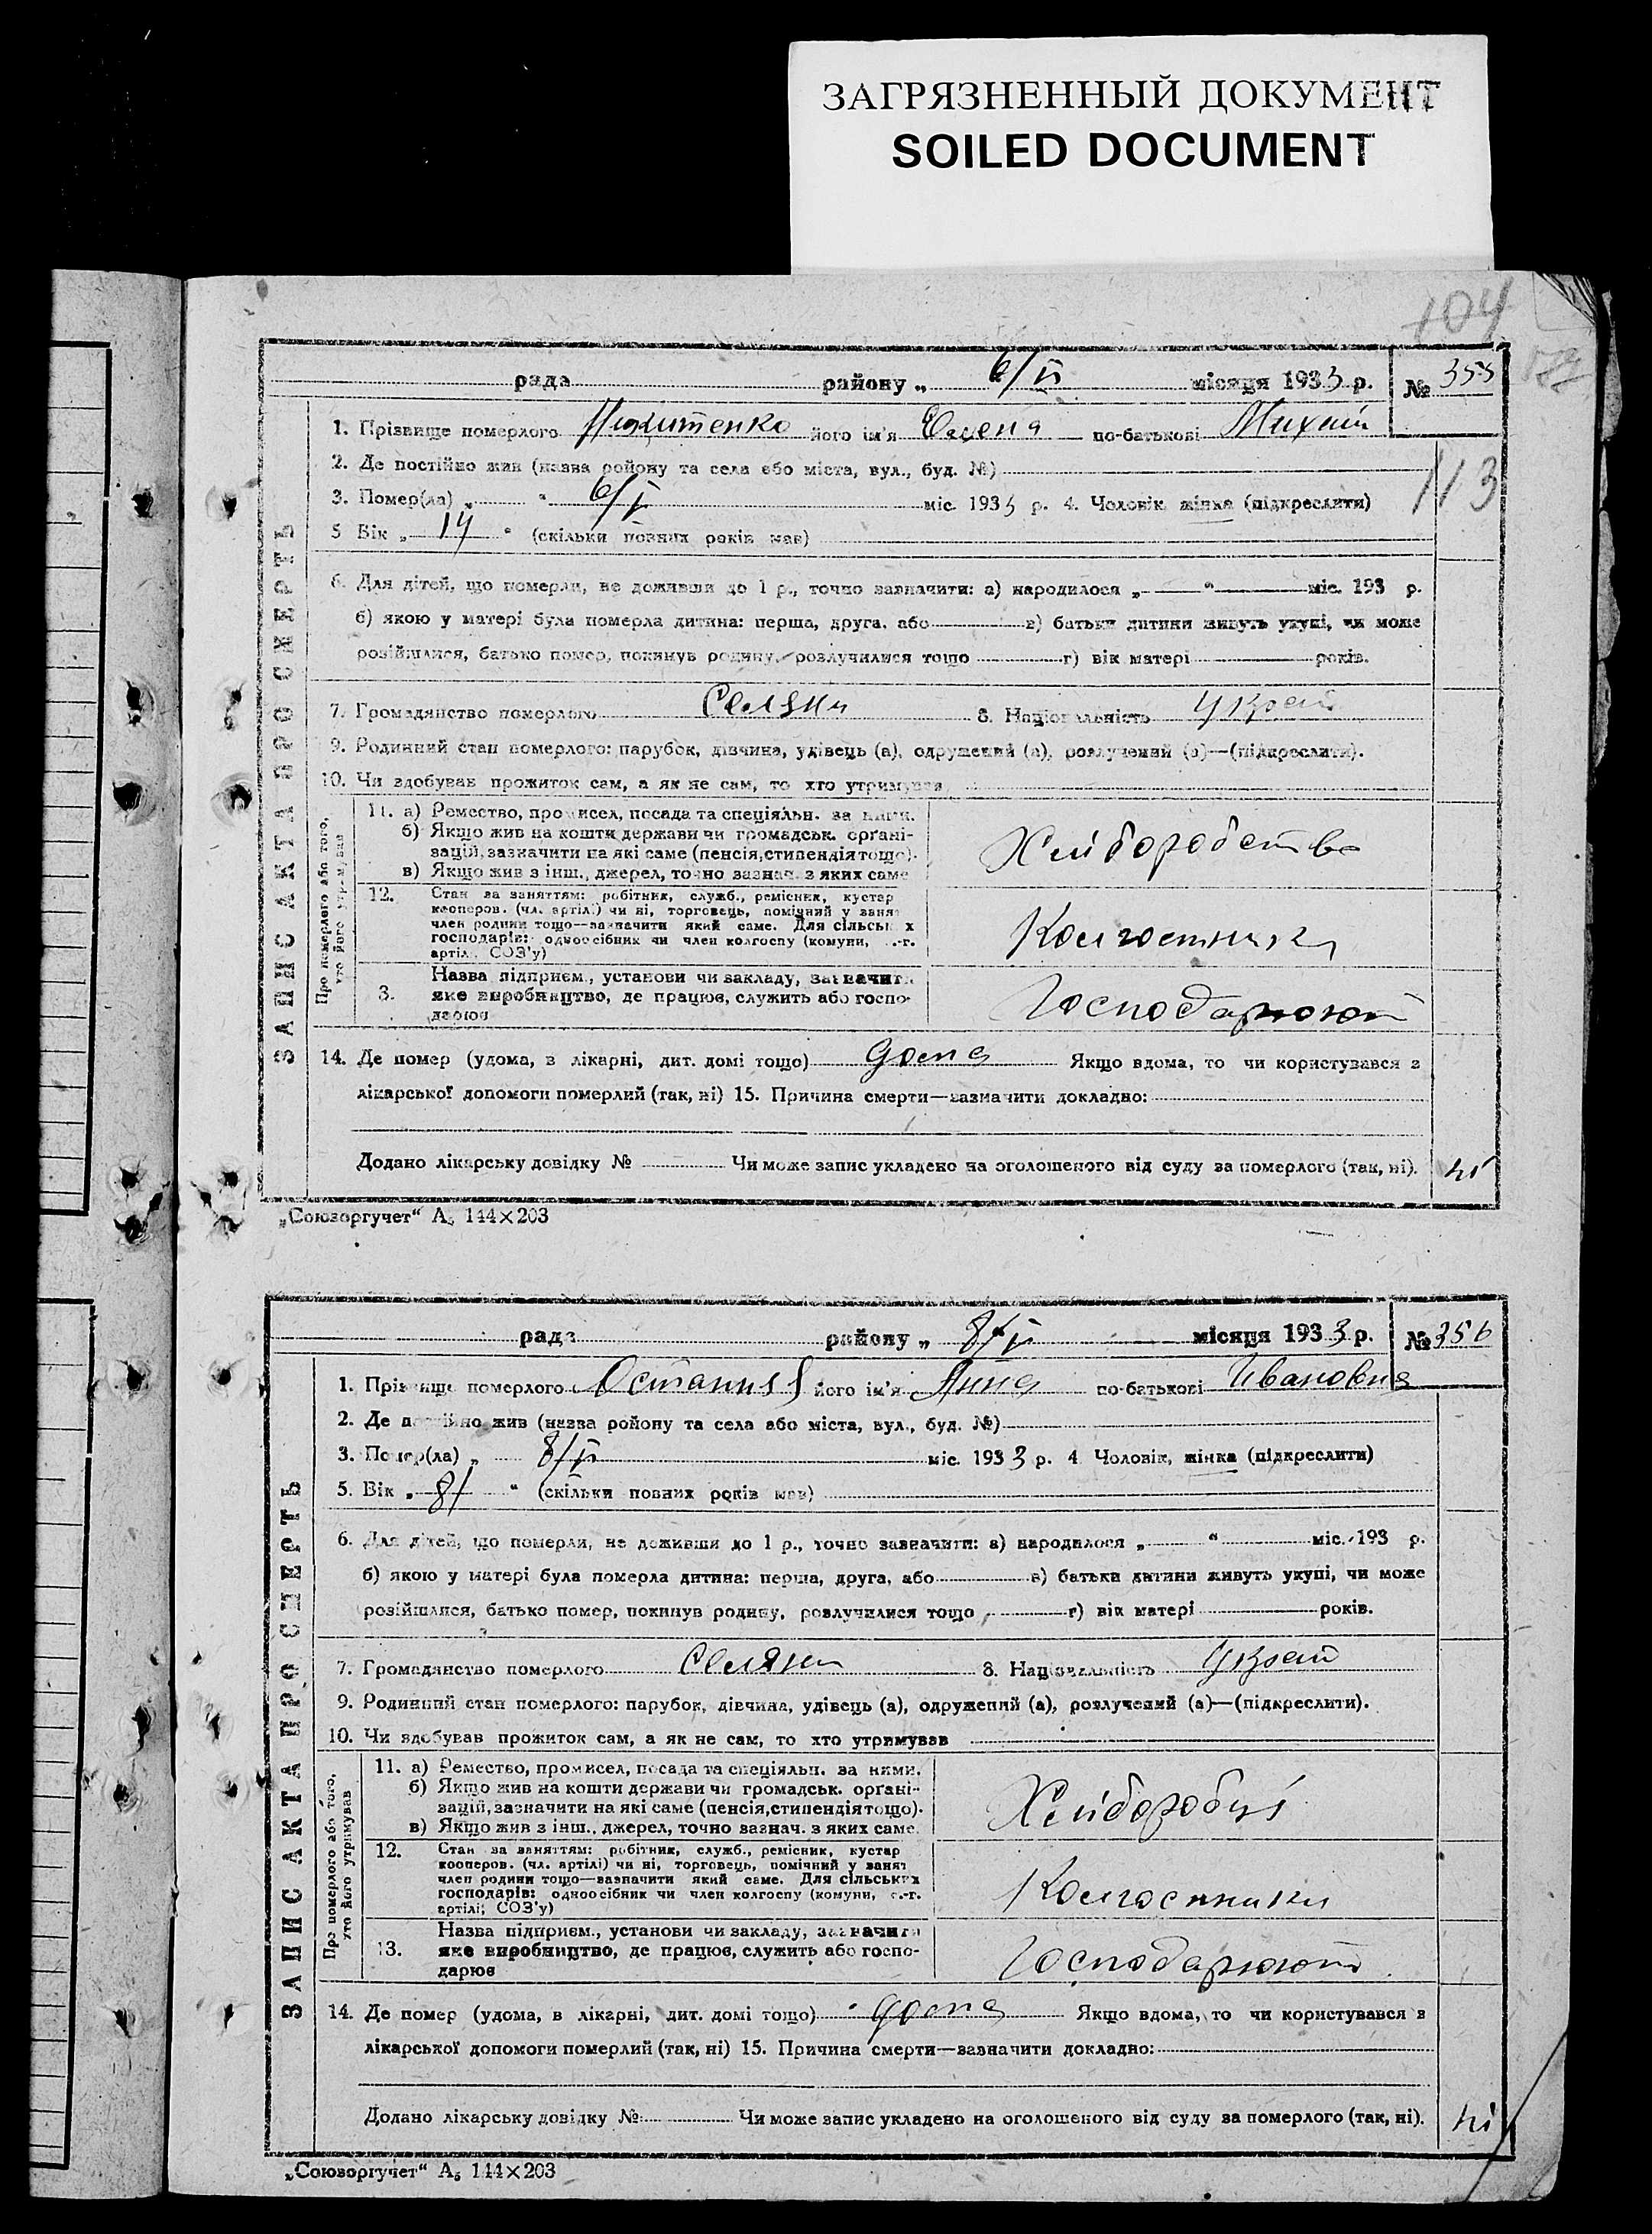 ЗАГРЯЗНЕННЫЙ ДОКУМЕНТ
SOILED DOCUMENT
104
рада району „ 6/V місяця 1933 р. № 355
1. Прізвище померлого Никитенко його ім'я Олена по-батькові Михай
2. Де постійно жив (назва ройону та села або міста, вул., буд. №)
3. Помер(ла) „ “ 6/V міс. 1933 р. 4. Чоловік жінка (підкреслити)
113
5 Вік „ 14 “ (скільки повних років мав)
6. Для дітей, що померли, не доживши до 1 р., точно зазначити: а) народилося „ “ міс. 193 р.
б) якою у матері була померла дитина: перша, друга, або в) батьки дитини живуть укупі, чи може
розійшлися, батько помер, покинув родину, розлучилися тощо г) вік матері років.
7. Громадянство померлого Селянки 8. Національність Україн
9. Родинний стан померлого: парубок, дівчина, удівець (а), одружений (а), розлучений (а)—(підкреслити).
10. Чи здобував прожиток сам, а як не сам, то хто утримував
ЗАПИС АКТА ПРО СМЕРТЬ
Про померлого або того, хто його утримував
11. а) Ремество, промисел, посада та спеціяльн. за ними.
б) Якщо жив на кошти держави чи громадськ. організацій, зазначити на які саме (пенсія, стипендія тощо).
в) Якщо жив з інш., джерел, точно зазнач. з яких саме
Хліборобство
12. Стан за заняттям: робітник, служб., ремісник, кустар
кооперов. (чл. артілі) чи ні, торговець, помічний у занят
член родини тощо—зазначити який саме. Для сільських
господарів: одноосібник чи член колгоспу (комуни, с.-г.
артілі, СОЗ'у)
Колгоспники
13. Назва підприєм., установи чи закладу, зазначити
яке виробництво, де працює, служить або госпо-
дарює
Господарюють
14. Де помер (удома, в лікарні, дит. домі тощо) дома Якщо вдома, то чи користувався з
лікарської допомоги померлий (так, ні) 15. Причина смерти—зазначити докладно:
Додано лікарську довідку № Чи може запис укладено на оголошеного від суду за померлого (так, ні). ні
„Союзоргучет“ А5 144×203
рада району „ 8/V місяця 1933 р. № 356
1. Прізвище померлого його ім'я Анна по-батькові Ивановна
2. Де постійно жив (назва ройону та села або міста, вул., буд. №)
3. Помер(ла) „ 8/V міс. 1933 р. 4 Чоловік, жінка (підкреслити)
5. Вік „ 81 “ (скільки повних років мав)
6. Для дітей, що померли, не доживши до 1 р., точно зазначити: а) народилося „ “ міс. 193 р.
б) якою у матері була померла дитина: перша, друга, або в) батьки дитини живуть укупі, чи може
розійшлися, батько помер, покинув родину, розлучилися тощо г) вік матері років.
7. Громадянство померлого Селянки 8. Національність Україн
9. Родинний стан померлого: парубок, дівчина, удівець (а), одружений (а), розлучений (а)—(підкреслити).
10. Чи здобував прожиток сам, а як не сам, то хто утримував
ЗАПИС АКТА ПРО СМЕРТЬ
Про померлого або того, хто його утримував
11. а) Ремество, промисел, посада та спеціяльн. за ними.
б) Якщо жив на кошти держави чи громадськ. організацій, зазначити на які саме (пенсія, стипендія тощо).
в) Якщо жив з інш., джерел, точно зазнач. з яких саме.
Хлібороби
12. Стан за заняттям: робітник, служб., ремісник, кустар
кооперов. (чл. артілі) чи ні, торговець, помічний у занят
член родини тощо—зазначити який саме. Для сільських
господарів: одноосібник чи член колгоспу (комуни, с.-г.
артілі; СОЗ'у)
Колгоспники
13. Назва підприєм., установи чи закладу, зазначити
яке виробництво, де працює, служить або госпо-
дарює
Господарюють
14. Де помер (удома, в лікарні, дит. домі тощо) дома Якщо вдома, то чи користувався з
лікарської допомоги померлий (так, ні) 15. Причина смерти—зазначити докладно:
Додано лікарську довідку № Чи може запис укладено на оголошеного від суду за померлого (так, ні). ні
„Союзоргучет“ А5 144×203